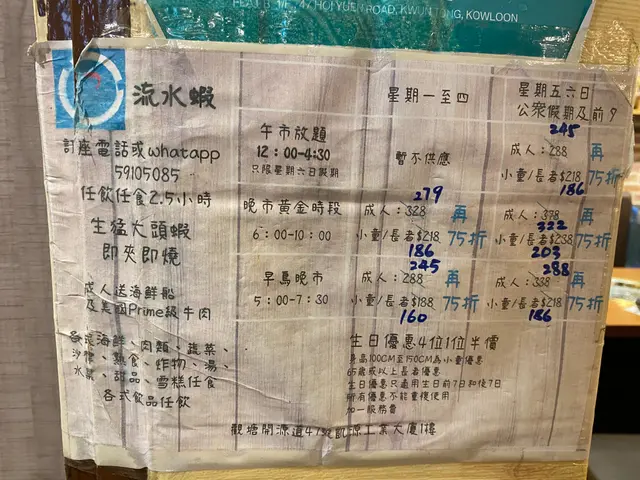 FLAT B, 1/F., 47 HOI YUEN ROAD, KWUN TONG, KOWLOON
流水蝦
星期一至四
星期五六日
公眾假期及前夕
訂座電話或whatapp
59105085
任飲任食2.5小時
生猛大頭蝦
即夾即燒
成人送海鮮船
及美國Prime級牛肉
各款海鮮、肉類、蔬菜、
沙律、熟食、炸物、湯、
水果、甜品、雪糕任食
各式飲品任飲
午市放題
12:00-4:30
只限星期六日假期
暫不供應
245
成人:288
小童/長者$218
186
再
75折
晚市黃金時段
6:00-10:00
279
成人:328
小童/長者$218
186
再
75折
成人:378
322
小童/長者$238
203
再
75折
早鳥晚市
5:00-7:30
245
成人:288
小童/長者$188
160
再
75折
288
成人:338
小童/長者$218
186
再
75折
生日優惠4位1位半價
身高100CM至150CM為小童優惠
65歲或以上長者優惠
生日優惠只適用生日前7日和後7日
所有優惠不能重複使用
加一服務費
觀塘開源道47號凱源工業大廈1樓